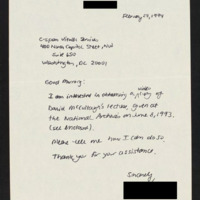 February 20, 1994
C-Span Viewer Services
400 North Capitol Street, NW
Suite 650
Washington, DC 20001
Dear Murray:
I am interested in obtaining a copy of
David McCullough's lecture, given at
the National Archives on June 8, 1993.
(see enclosed).
Please tell me how I can do so.
Thank you for your assistance.
Sincerely,